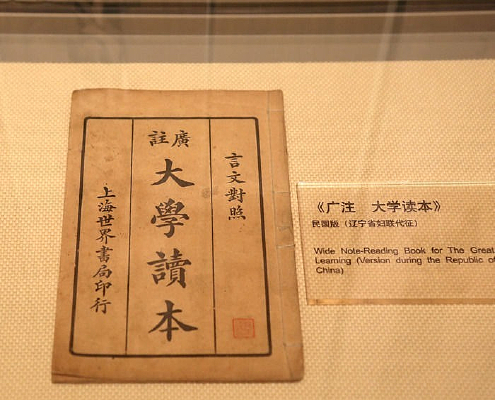 言文對照
廣註
大學讀本
上海世界書局印行
《广注　大学读本》
民国版（辽宁省妇联代征）
Wide Note-Reading Book for The Great
Learning (Version during the Republic of
China)